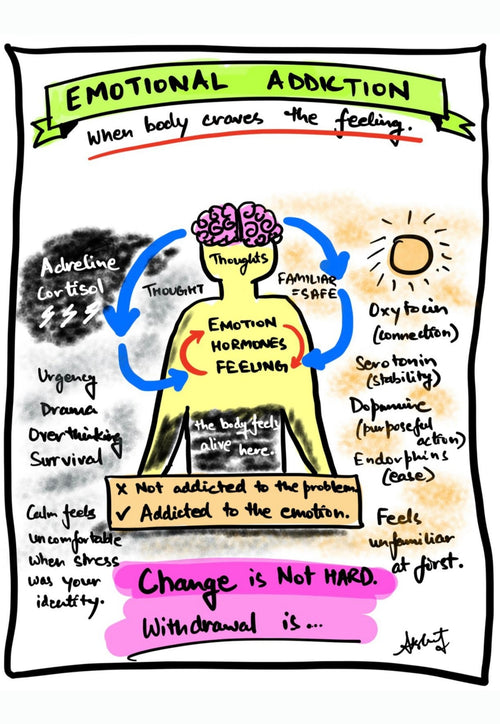 EMOTIONAL ADDICTION
When body craves the feeling.
Thoughts
THOUGHT
FAMILIAR
=SAFE
EMOTION
HORMONES
FEELING
the body feels
alive here.
Adreline
Cortisol
Urgency
Drama
Overthinking
Survival
Calm feels
uncomfortable
when stress
was your
identity.
Oxytocin
(connection)
Serotonin
(stability)
Dopamine
(purposeful
action)
Endorphins
(ease)
Feels
unfamiliar
at first.
x Not addicted to the problem.
✓ Addicted to the emotion.
Change is Not HARD.
Withdrawal is...